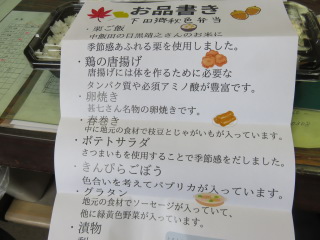 お品書き
下田済秋色弁当
・栗ご飯
中飯田の目黒靖之さんのお米に
季節感あふれる栗を使用しました。
・鶏の唐揚げ
唐揚げには体を作るために必要な
タンパク質や必須アミノ酸が豊富です。
・卵焼き
甚七さん名物の卵焼きです。
・春巻き
中に地元の食材で枝豆とじゃがいもが入っています。
・ポテトサラダ
さつまいもを使用することで季節感をだしました。
・きんぴらごぼう
色合いを考えてパプリカが入っています。
・グラタン
地元の食材でソーセージが入っていて、
他に緑黄色野菜が入っています。
・漬物